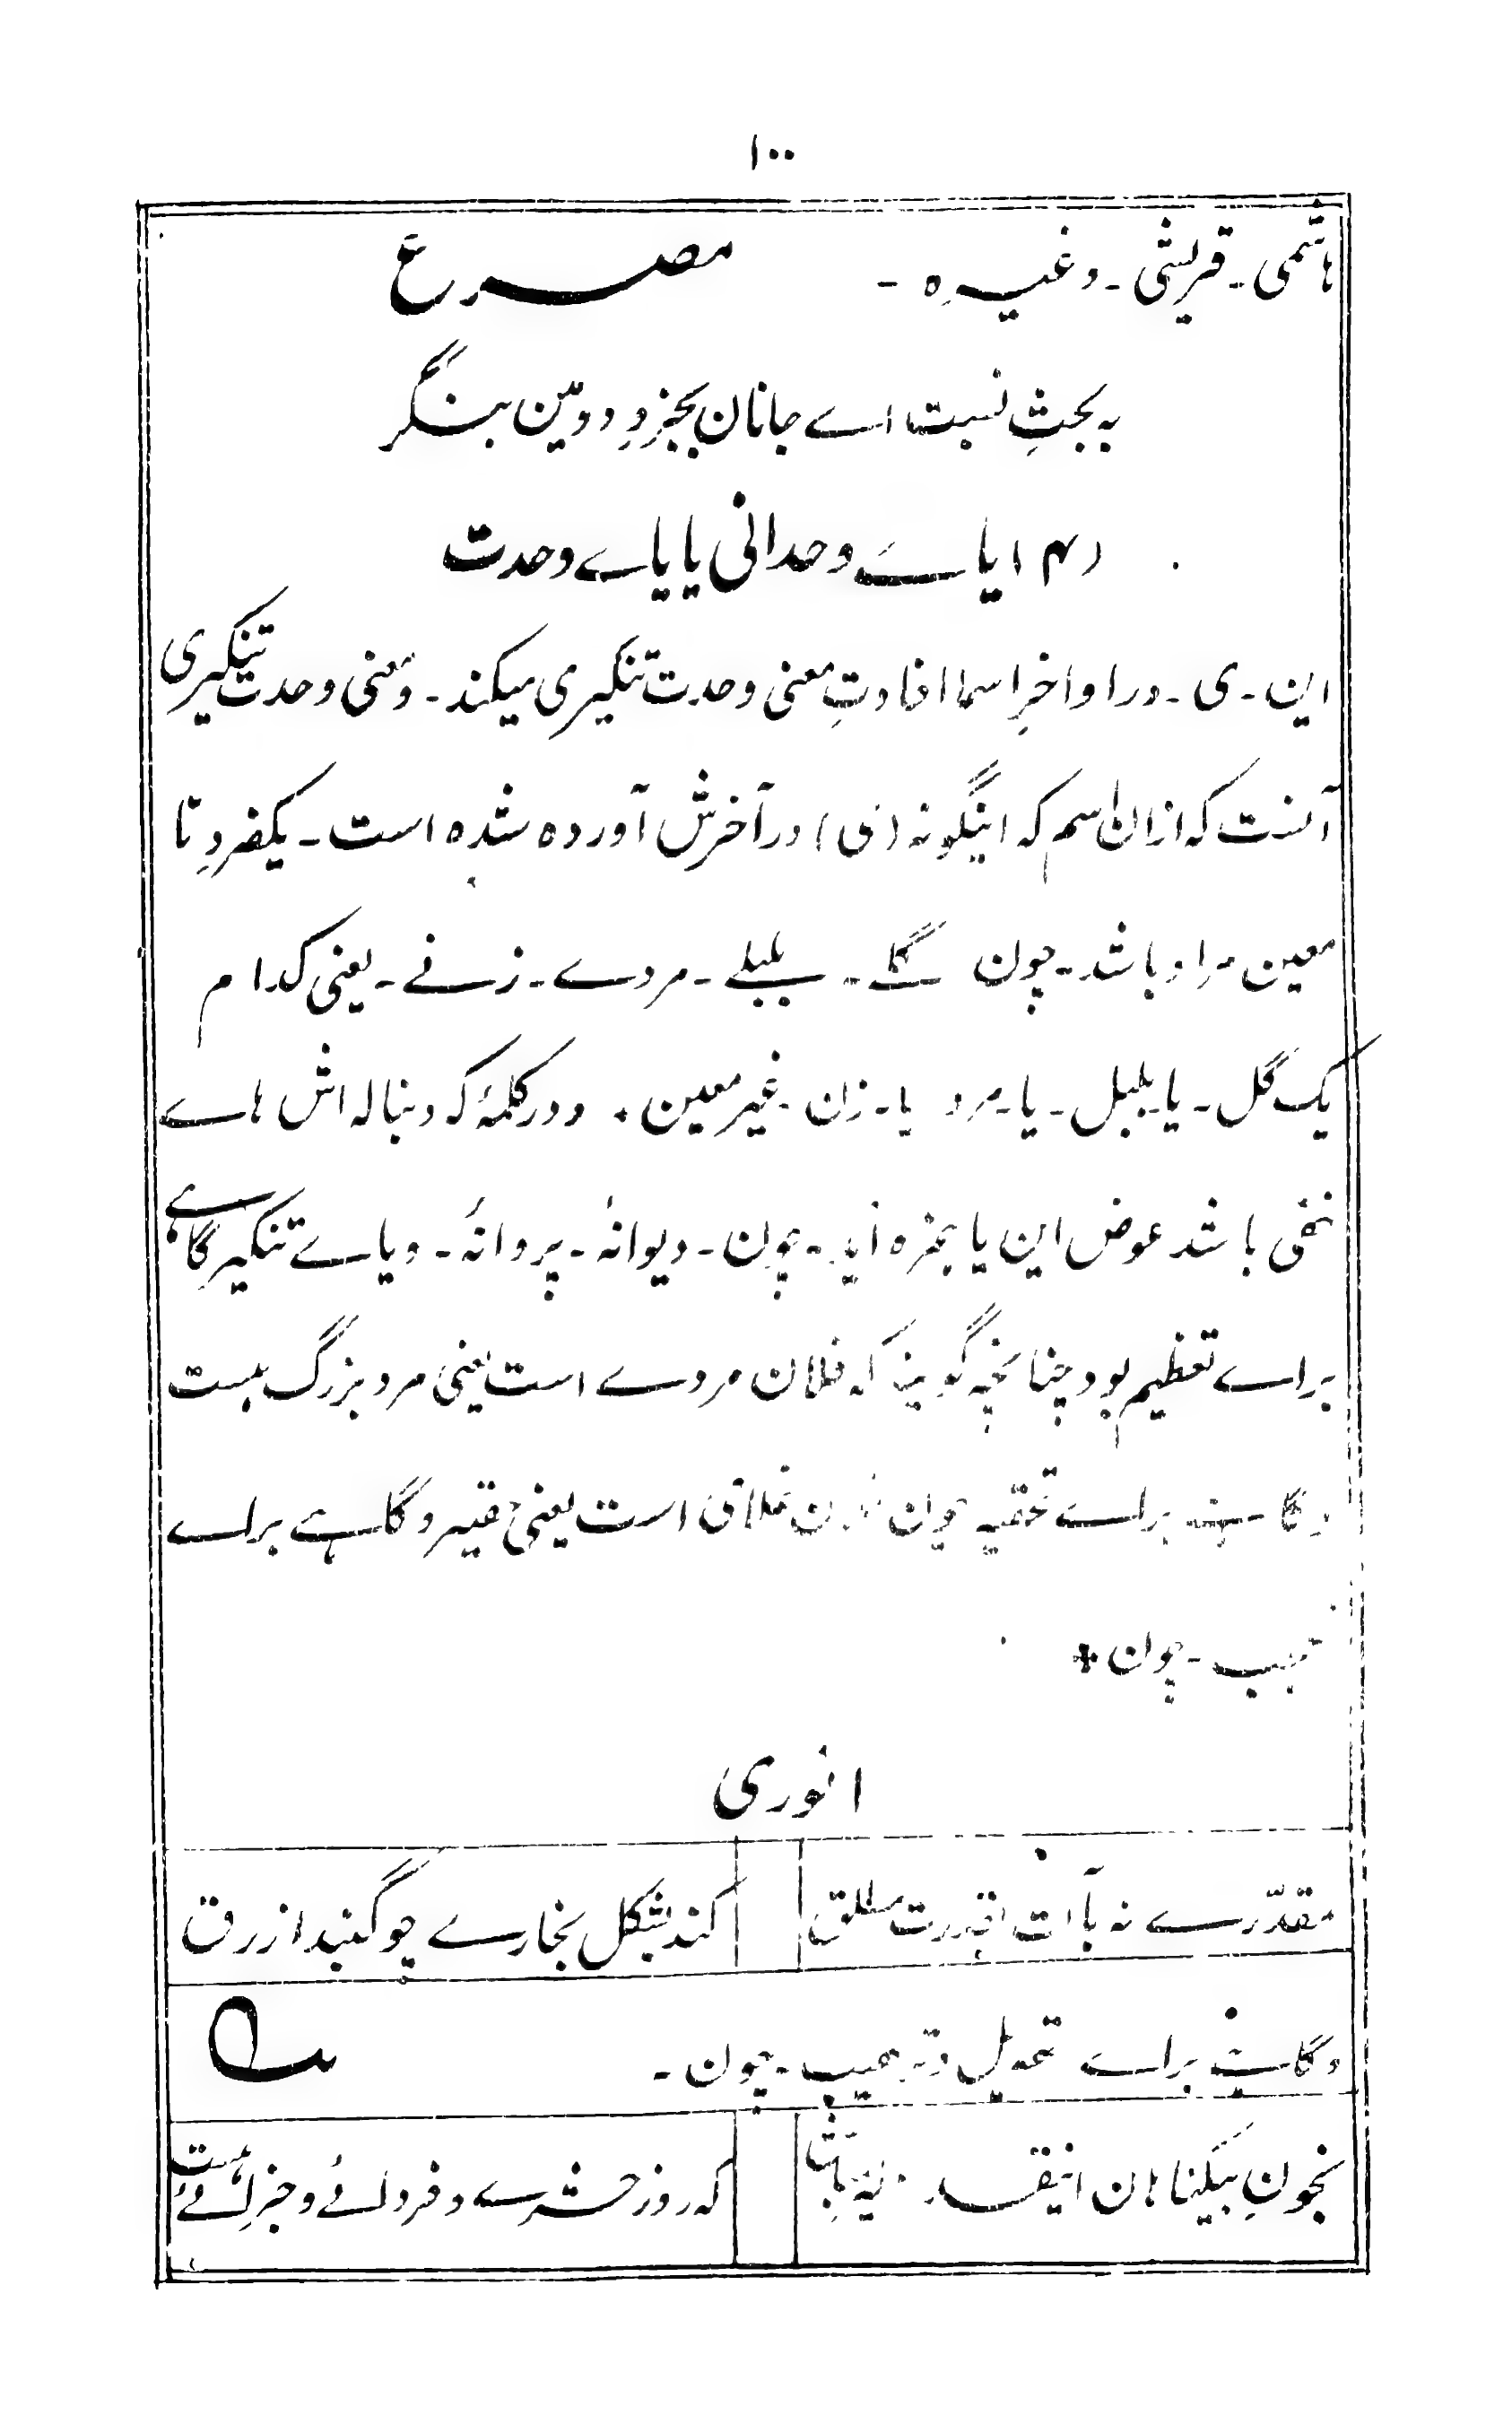 ۱۰۰
ہاشمی۔ قریشی۔ وغیرہ۔ مصرع
بہ بحثِ نسبت اے جانان بجزوِ دومین بنگر
(۴) یاے وحدانی یا یاے وحدت
این۔ ی۔ در اواخرِ اسما افادتِ معنی وحدت تنکیری میکند۔ و معنی وحدت تنکیری
آنست کہ ازان اسم کہ اینگونہ (ی) در آخرش آوردہ شدہ است۔ یکفردِ نا
معین مراد باشد۔ چون گلے۔ بلبلے۔ مردے۔ زنے۔ یعنی کدام
یک گل۔ یا۔ بلبل۔ یا۔ مرد یا۔ زن۔ غیر معین۔ و در کلمۂ کہ دنبالہ اش ہاے
خفی باشد عوض این یا ہمزہ آید۔ چون۔ دیوانۂ۔ پروانۂ۔ و یاے تنکیر گاہے
براے تعظیم بود چنانچہ گویند کہ فلان مردے است یعنی مرد بزرگ ہست
و گاہے براے تحقیر چون فلان غلامی است یعنی حقیر و گاہے براے
تعجب۔ چون +
انوری
مقدّرے نہ بآلت بقدرت مطلق
کند بشکل بخارے چو گنبد ازرق
و گاہے براے تہویل و ترہیب۔ چون۔
بخونِ بیگناہان اینقدر
کہ روز حشرے و فردائے و جزائے ہست